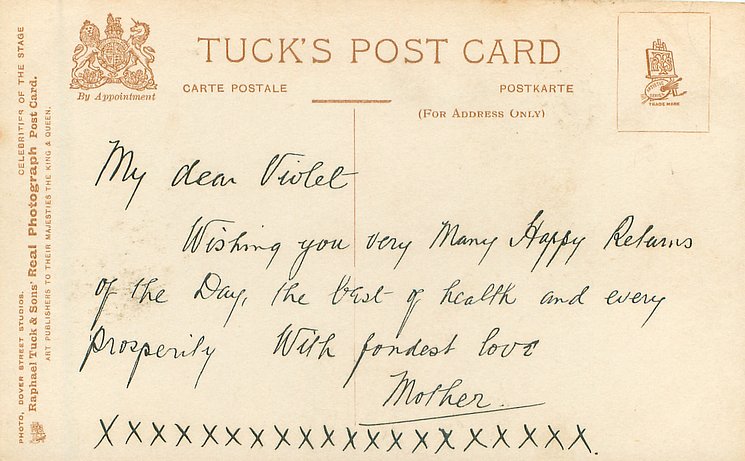 TUCK'S POST CARD
CARTE POSTALE
POSTKARTE
(FOR ADDRESS ONLY)
By Appointment
TRADE MARK
CELEBRITIES OF THE STAGE
PHOTO, DOVER STREET STUDIOS.
Raphael Tuck & Sons' Real Photograph Post Card.
ART PUBLISHERS TO THEIR MAJESTIES THE KING & QUEEN.
My dear Violet
Wishing you very Many Happy Returns
of the Day, the best of health and every
prosperity With fondest love
Mother.
XXXXXXXXXXXXXXXXXXXX.